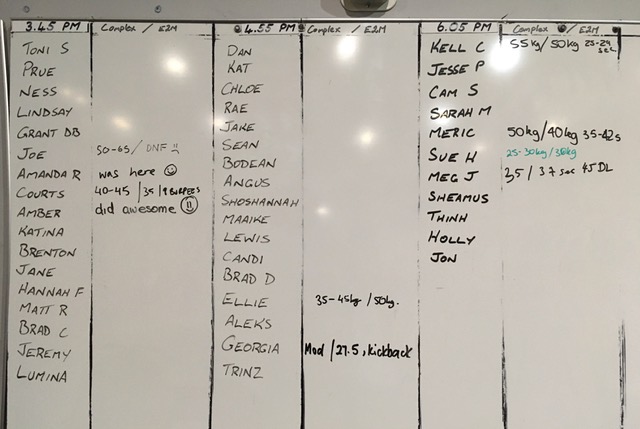 3.45 PM Complex / E2M
TONI S
PRUE
NESS
LINDSAY
GRANT DB
JOE 50-65 / DNF
AMANDA R was here ☺
COURTS 40-45 / 35 / 9 BURPEES
AMBER did awesome
KATINA
BRENTON
JANE
HANNAH F
MATT R
BRAD C
JEREMY
LUMINA
4.55 PM Complex / E2M
DAN
KAT
CHLOE
RAE
JAKE
SEAN
BODEAN
ANGUS
SHOSHANNAH
MAAIKE
LEWIS
CANDI
BRAD D
ELLIE 35-45kg / 50kg.
ALEKS
GEORGIA Mod / 27.5, kickback
TRINZ
6.05 PM Complex / E2M
KELL C 55kg / 50kg 25-29 sec
JESSE P
CAM S
SARAH M
MERIC 50kg / 40kg 35-42s
SUE H 25-30kg / 30kg
MEG J 35 / 37 sec 45 DL
SHEAMUS
THINH
HOLLY
JON